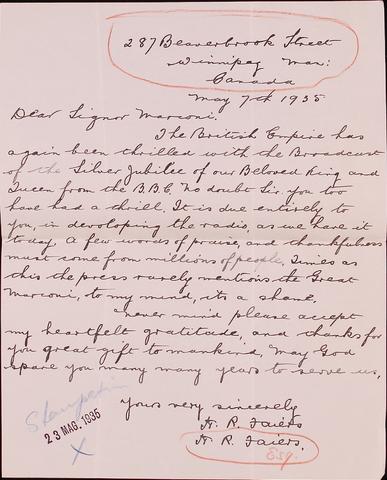 287 Beaverbrook Street
Winnipeg Man:
Canada
May 7th 1935
Dear Signor Marconi.
The British Empire has
again been thrilled with the Broadcast
of the Silver Jubilee of our Beloved King and
Queen from the B.B.C. No doubt Sir, you too
have had a thrill. It is due entirely to
you, in devoloping the radio, as we have it
today. A few words of praise, and thankfulness
must come from millions of people. Times as
this the press rarely mentions the Great
Marconi, to my mind, its a shame.
never mind please accept
my heartfelt gratitude, and thanks for
you great gift to mankind, May God
spare you many many years to serve us,
yours very sincerely
H. R. Faiers
H. R. Faiers.
Esq.
23 MAG. 1935
X